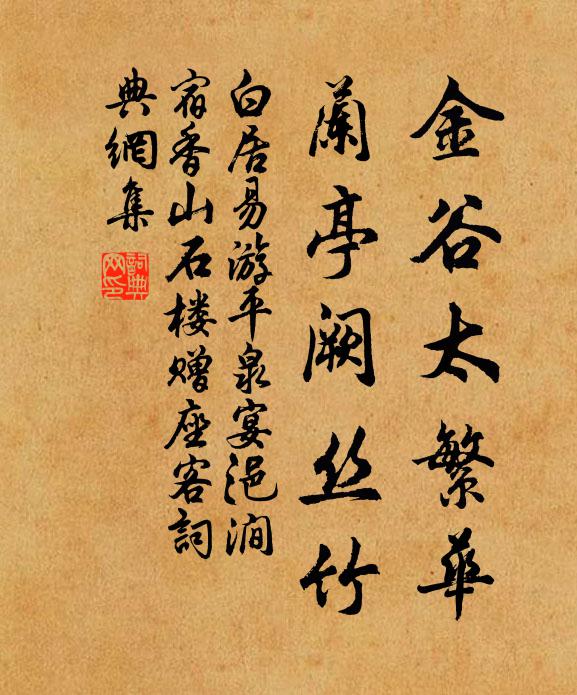 金谷太繁華
蘭亭阙丝竹
白居易游平泉宴浥涧
宿香山石楼赠座客詞
典網集
詞典网印